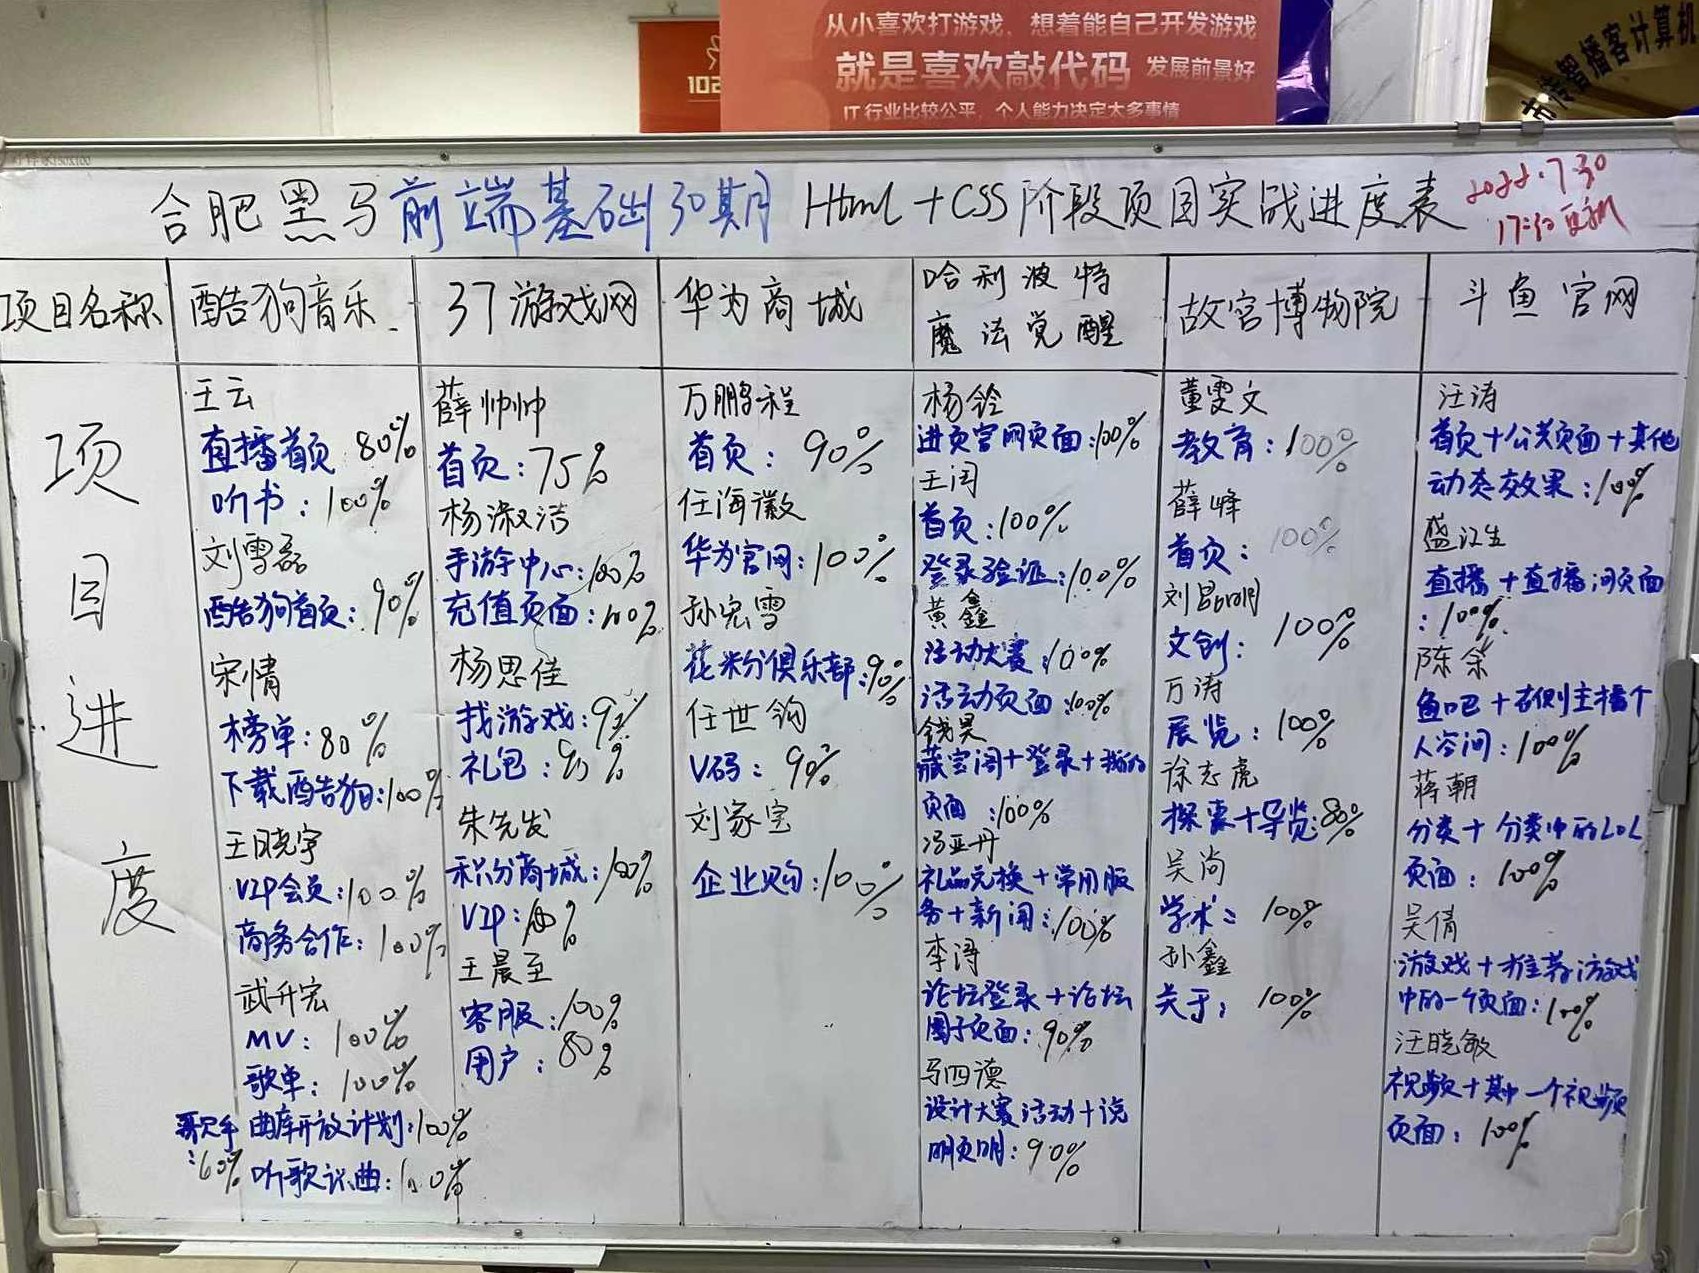 从小喜欢打游戏，想着能自己开发游戏
就是喜欢敲代码 发展前景好
IT行业比较公平，个人能力决定太多事情
102
市传智播客计算机
合肥黑马前端基础30期 Html+CSS阶段项目实战进度表
2022.7.30
17:30更新
项目名称
酷狗音乐
37游戏网
华为商城
哈利波特
魔法觉醒
故宫博物院
斗鱼官网
项目进度
王云
直播首页 80%
听书：100%
刘雪磊
酷狗首页：90%
宋情
榜单：80%
下载酷狗：100%
王晓宇
VIP会员：100%
商务合作：100%
武升宏
MV：100%
歌单：100%
歌手：60%
曲库开放计划：100%
听歌识曲：100%
薛帅帅
首页：75%
杨淑洁
手游中心：100%
充值页面：100%
杨思佳
找游戏：
礼包：
朱先发
积分商城：100%
VIP：100%
王晨至
客服：100%
用户：80%
万鹏程
首页：90%
任海徽
华为官网：100%
孙宏雪
花粉俱乐部：90%
任世钩
V码：90%
刘家宝
企业购：100%
杨铃
进页官网页面：100%
王阔
首页：100%
登录验证：100%
黄鑫
活动大赛：100%
活动页面：100%
钱昊
藏宝阁+登录+我的
页面：100%
冯亚丹
礼品兑换+常用服
务+新闻：100%
李涛
论坛登录+论坛
圈子页面：90%
马四德
设计大赛活动+说
明页明：90%
董雯文
教育：100%
薛峰
首页：100%
刘昌明
文创：100%
万涛
展览：100%
徐志虎
探索+导览：80%
吴尚
学术：100%
孙鑫
关于：100%
汪涛
首页+公共页面+其他
动态效果：100%
盛汉生
直播+直播间页面
：100%
陈余
鱼吧+右侧主播个
人空间：100%
蒋朝
分类+分类中的LOL
页面：100%
吴倩
游戏+推荐游戏
中的一个页面：100%
汪晓敏
视频+其中一个视频
页面：100%